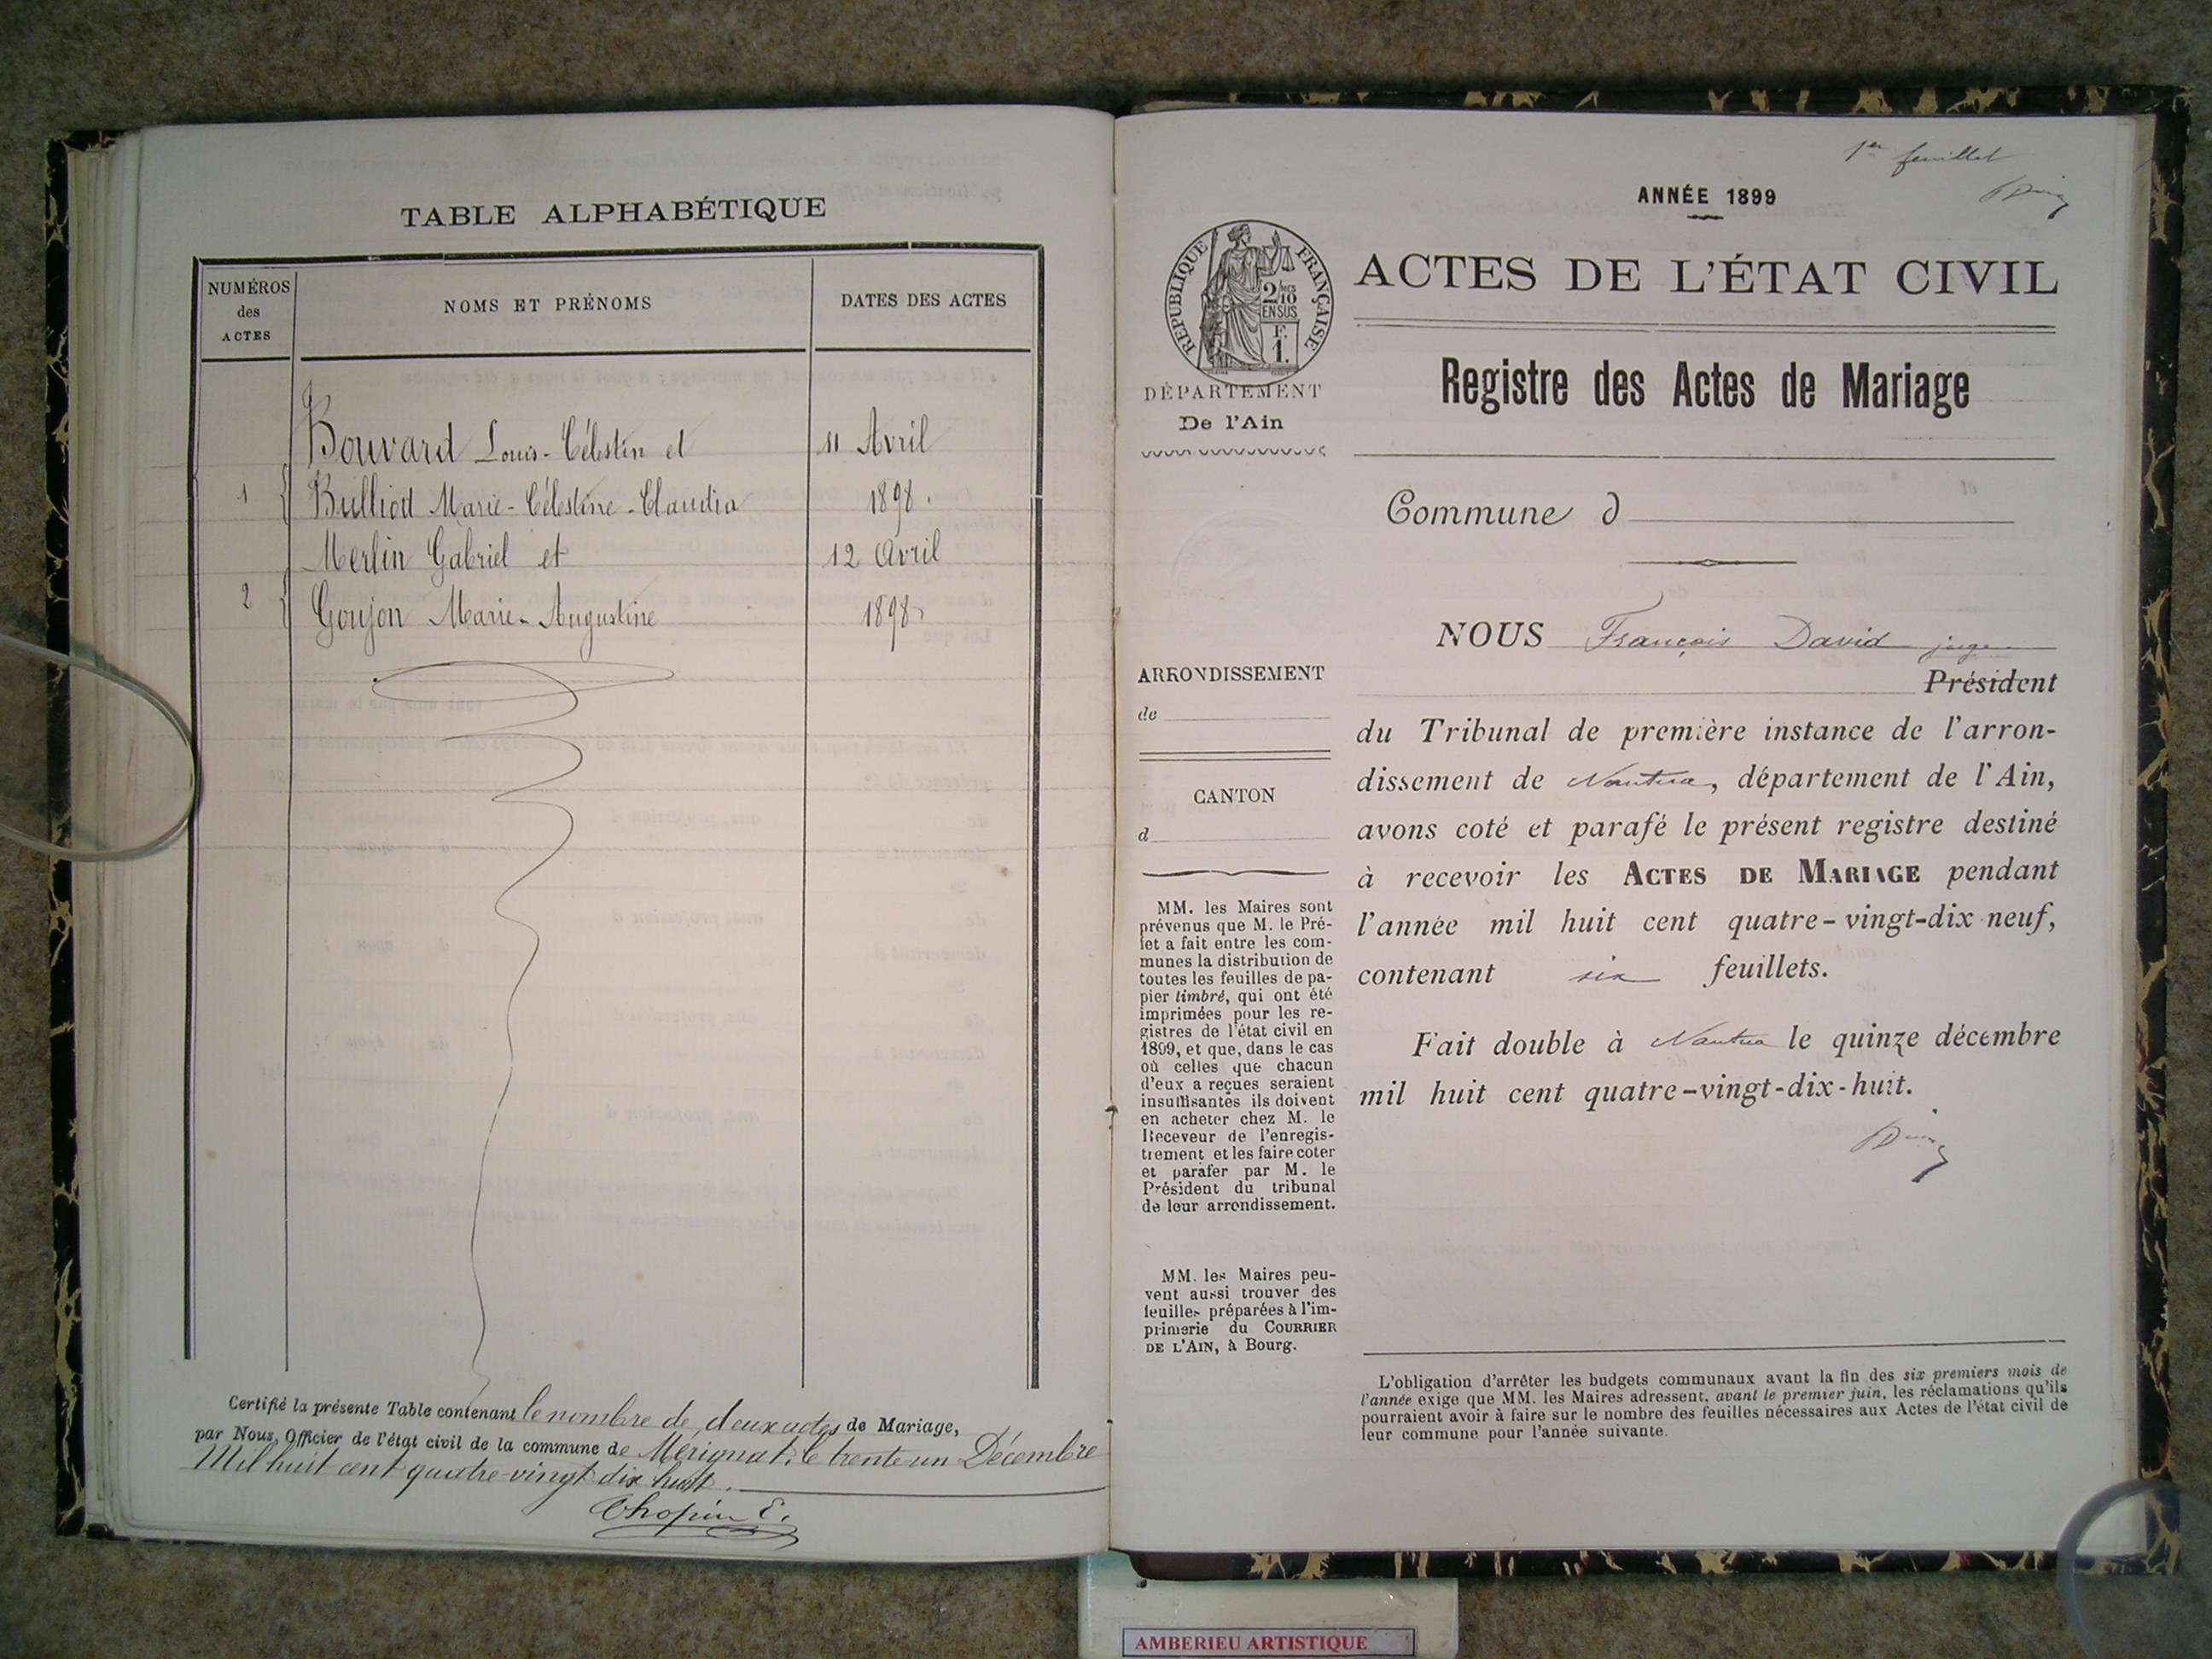 TABLE ALPHABÉTIQUE
NUMÉROS des ACTES
NOMS ET PRÉNOMS
DATES DES ACTES
Bouvard Louis-Célestin et 11 Avril
1 Bulliod Marie-Célestine-Claudia 1898.
Merlin Gabriel et 12 Avril
2 Goujon Marie-Augustine 1898
Certifié la présente Table contenant le nombre de deux actes de Mariage,
par Nous, Officier de l'état civil de la commune de Mérignat, le trente-un Décembre
Mil huit cent quatre-vingt dix huit.
Chopin E.
1er feuillet
ANNÉE 1899
RÉPUBLIQUE FRANÇAISE
2/10
EN SUS
F.
1.
ACTES DE L'ÉTAT CIVIL
DÉPARTEMENT
De l'Ain
Registre des Actes de Mariage
Commune d
ARRONDISSEMENT
de
CANTON
d
MM. les Maires sont
prévenus que M. le Pré-
fet a fait entre les com-
munes la distribution de
toutes les feuilles de pa-
pier timbré, qui ont été
imprimées pour les re-
gistres de l'état civil en
1899, et que, dans le cas
où celles que chacun
d'eux a reçues seraient
insuffisantes ils doivent
en acheter chez M. le
Receveur de l'enregis-
trement et les faire coter
et parafer par M. le
Président du tribunal
de leur arrondissement.
MM. les Maires peu-
vent aussi trouver des
feuilles préparées à l'im-
primerie du COURRIER
DE L'AIN, à Bourg.
NOUS François David juge
Président
du Tribunal de première instance de l'arron-
dissement de Nantua, département de l'Ain,
avons coté et parafé le présent registre destiné
à recevoir les ACTES DE MARIAGE pendant
l'année mil huit cent quatre-vingt-dix neuf,
contenant six feuillets.
Fait double à Nantua le quinze décembre
mil huit cent quatre-vingt-dix-huit.
L'obligation d'arrêter les budgets communaux avant la fin des six premiers mois de
l'année exige que MM. les Maires adressent, avant le premier juin, les réclamations qu'ils
pourraient avoir à faire sur le nombre des feuilles nécessaires aux Actes de l'état civil de
leur commune pour l'année suivante.
AMBERIEU ARTISTIQUE